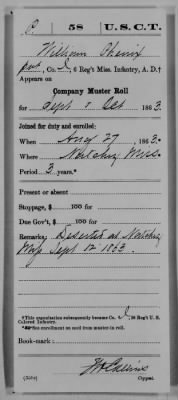 C. 58 U.S.C.T.
William Phenix
pvt, Co. I, 6 Reg't Miss. Infantry, A. D.†
Appears on
Company Muster Roll
for Sept & Oct, 1863.
Joined for duty and enrolled:
When Aug 27, 1863.
Where Natchez Miss.
Period 3 years.*
Present or absent
Stoppage, $ 100 for
Due Gov't, $ 100 for
Remarks: Deserted at Natchez
Miss Sept 12 1863.
†This organization subsequently became Co. I, 58 Reg't U. S.
Colored Infantry.
*See enrollment on card from muster-in roll.
Book-mark:
(358c) Copyist.